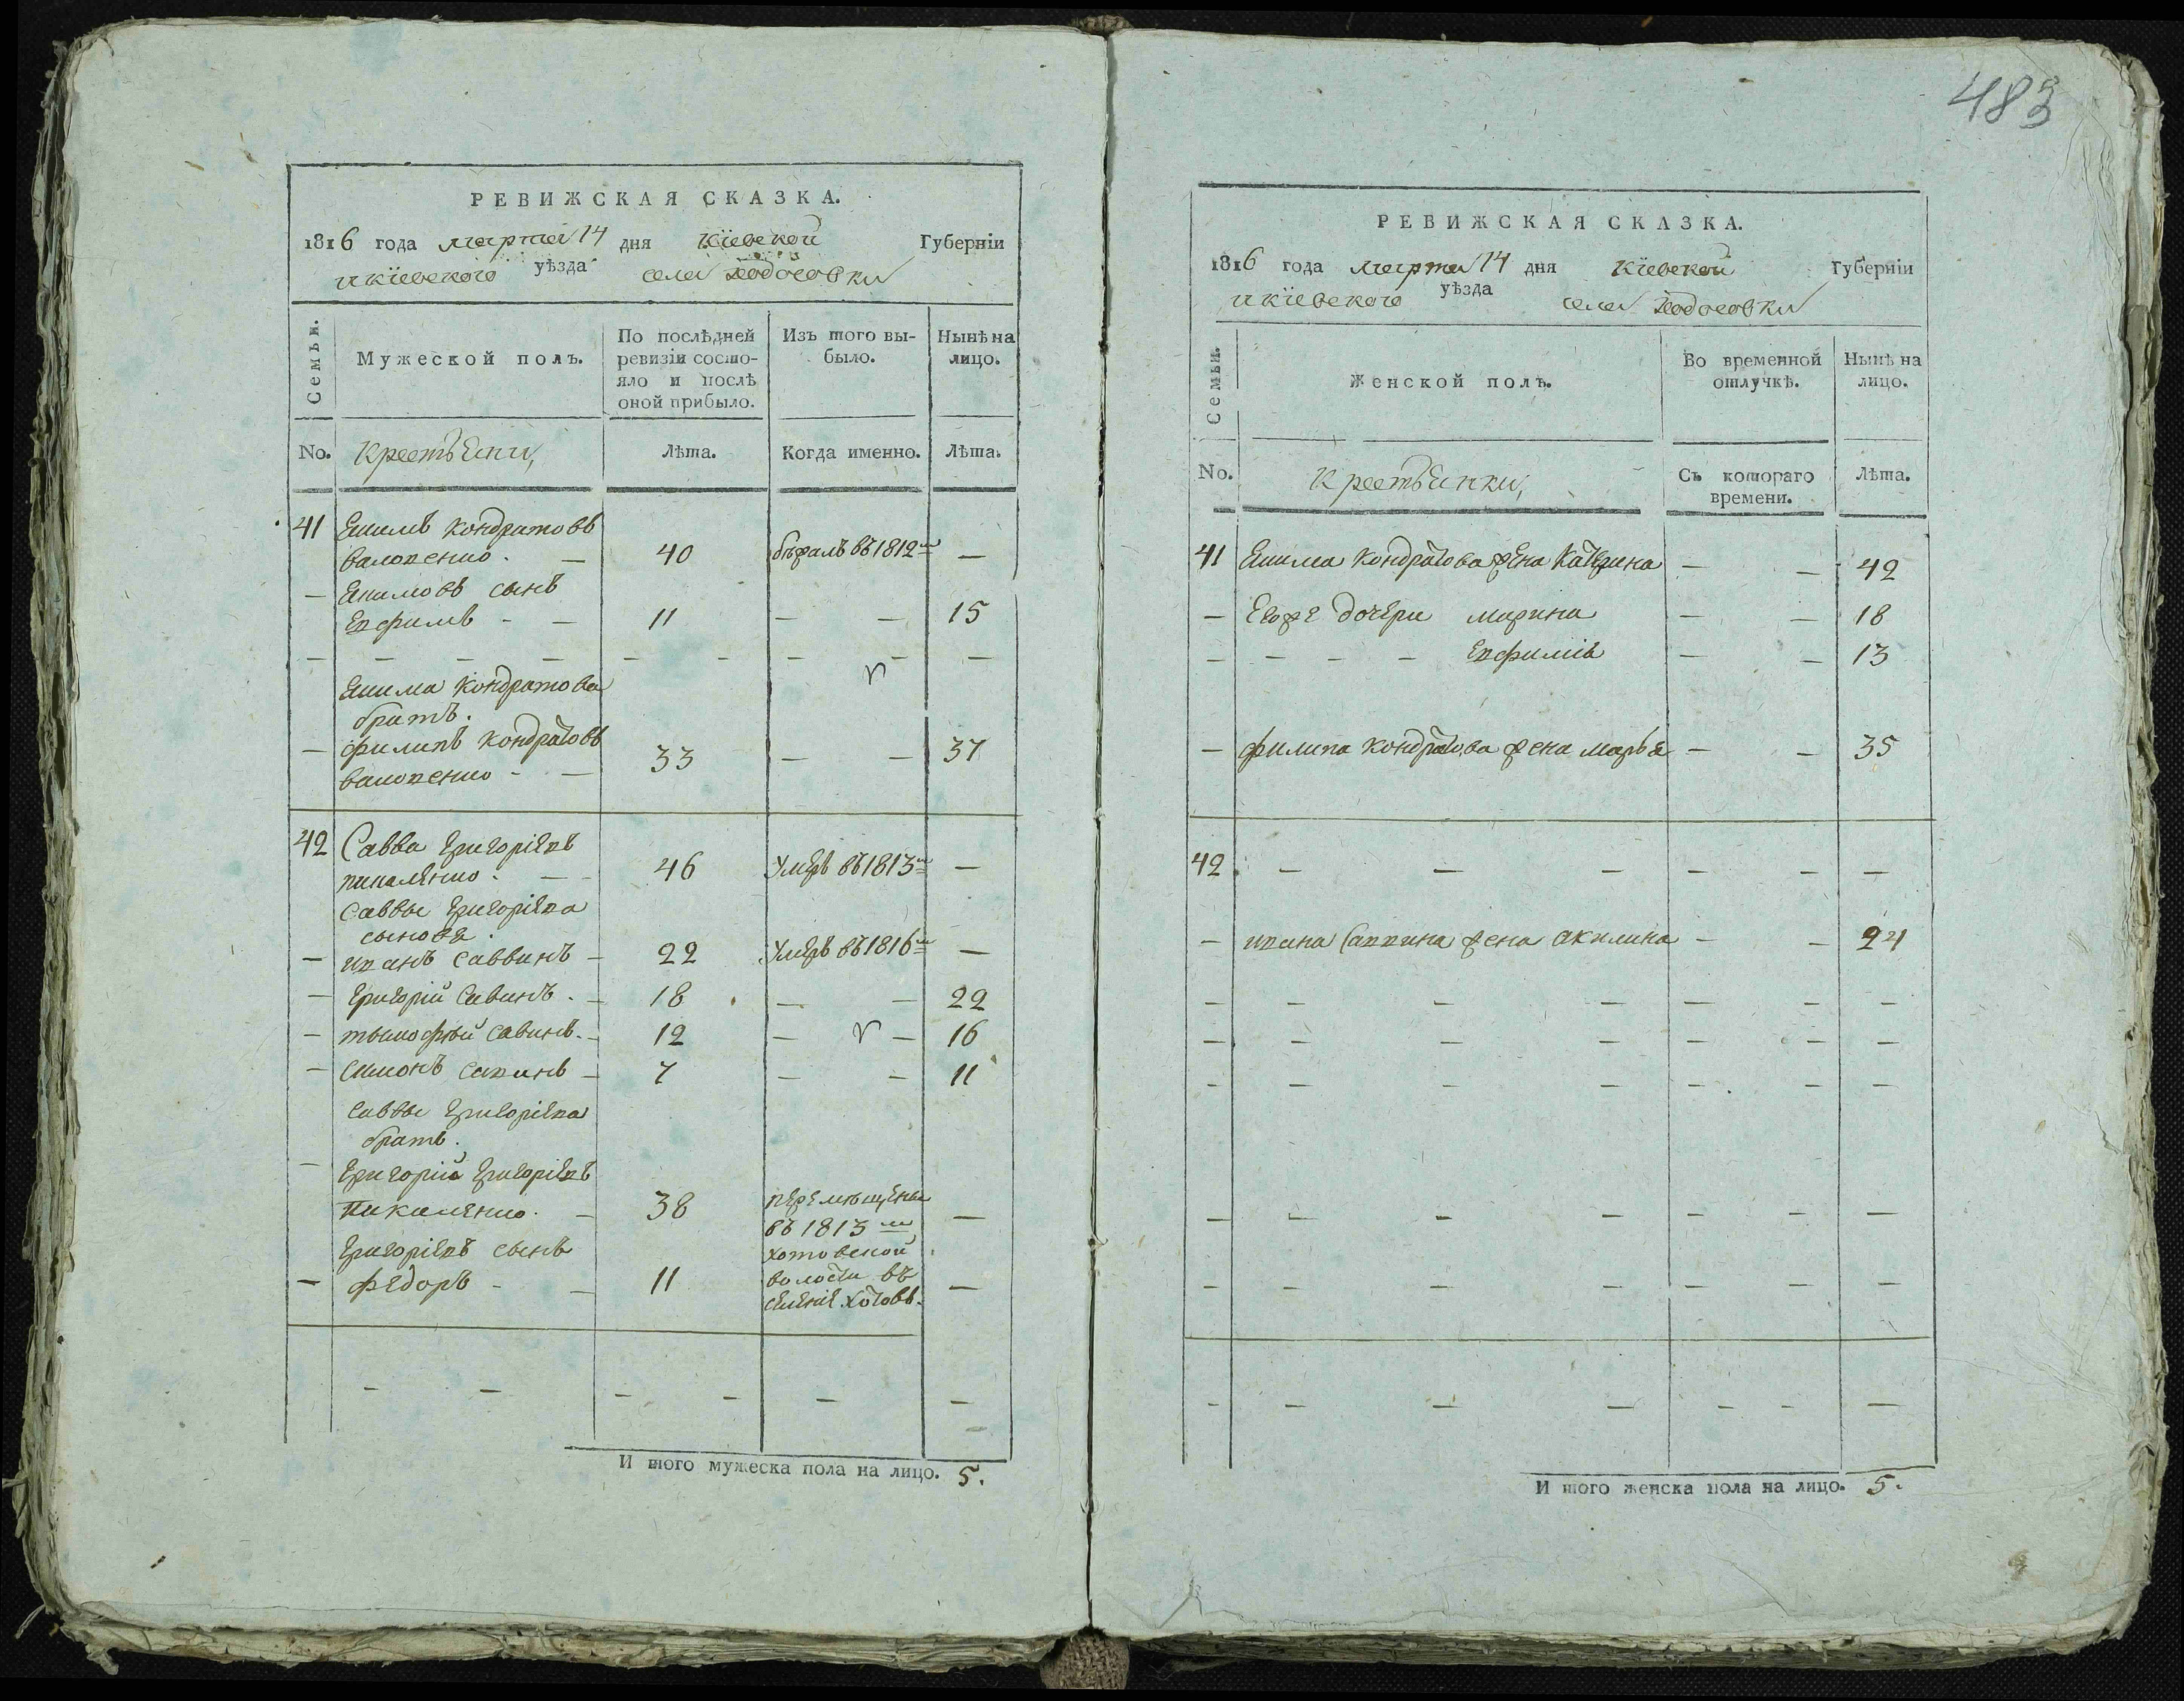 483
РЕВИЖСКАЯ СКАЗКА.
1816 года марта 14 дня Кіевской Губерніи
и кіевского уѣзда села Ходосовки
Семьи.
Мужеской полъ.
По послѣдней ревизіи состояло и послѣ оной прибыло.
Изъ того выбыло.
Нынѣ на лицо.
No. Крестьяни, Лѣта. Когда именно. Лѣта.
41 Якимъ Кондратовъ
— 40 бѣжалъ въ 1812м —
— Якимовъ сынъ
Евфимъ - — 11 — — 15
— — — — — - — — —
Якима Кондратова
братъ.
— Филипъ Кондратовъ
- — 33 — — 37
42 Савва Григоріевъ
— - 46 Умеръ въ 1813м —
Саввы Григоріева
сыновья.
— иванъ Саввинъ - 22 Умеръ въ 1816м —
— Григорій Савинъ. - 18 — — 22
— тымофѣй Савинъ. - 12 — — 16
— Симонъ Савинъ — 7 — — 11
Саввы Григоріева
братъ.
— Григорій Григоріевъ
— 38 перемѣщены —
въ 1813м
Григоріевъ сынъ хотовской
— Федоръ - — 11 волости въ —
селеніе Хотовъ.
— — — — — —
И того мужеска пола на лицо. 5.
РЕВИЖСКАЯ СКАЗКА.
1816 года марта 14 дня Кіевской Губерніи
и кіевского уѣзда села Ходосовки
Семьи.
Женской полъ.
Во временной отлучкѣ.
Нынѣ на лицо.
No. Крестьянки, Съ котораго времени. Лѣта.
41 Якима Кондратова жена Катерина — — 42
— Егоже дочери марина — — 18
- - - - Евфимія — — 13
— филипа Кондратова жена марья — — 35
42 — — — — — —
— ивана Саввина жена акилина - — 24
— — — — — — —
— — — — — — —
— — — — — — —
— — — — — — —
— — — — — — —
- — — — - - —
И того женска пола на лицо. 5.